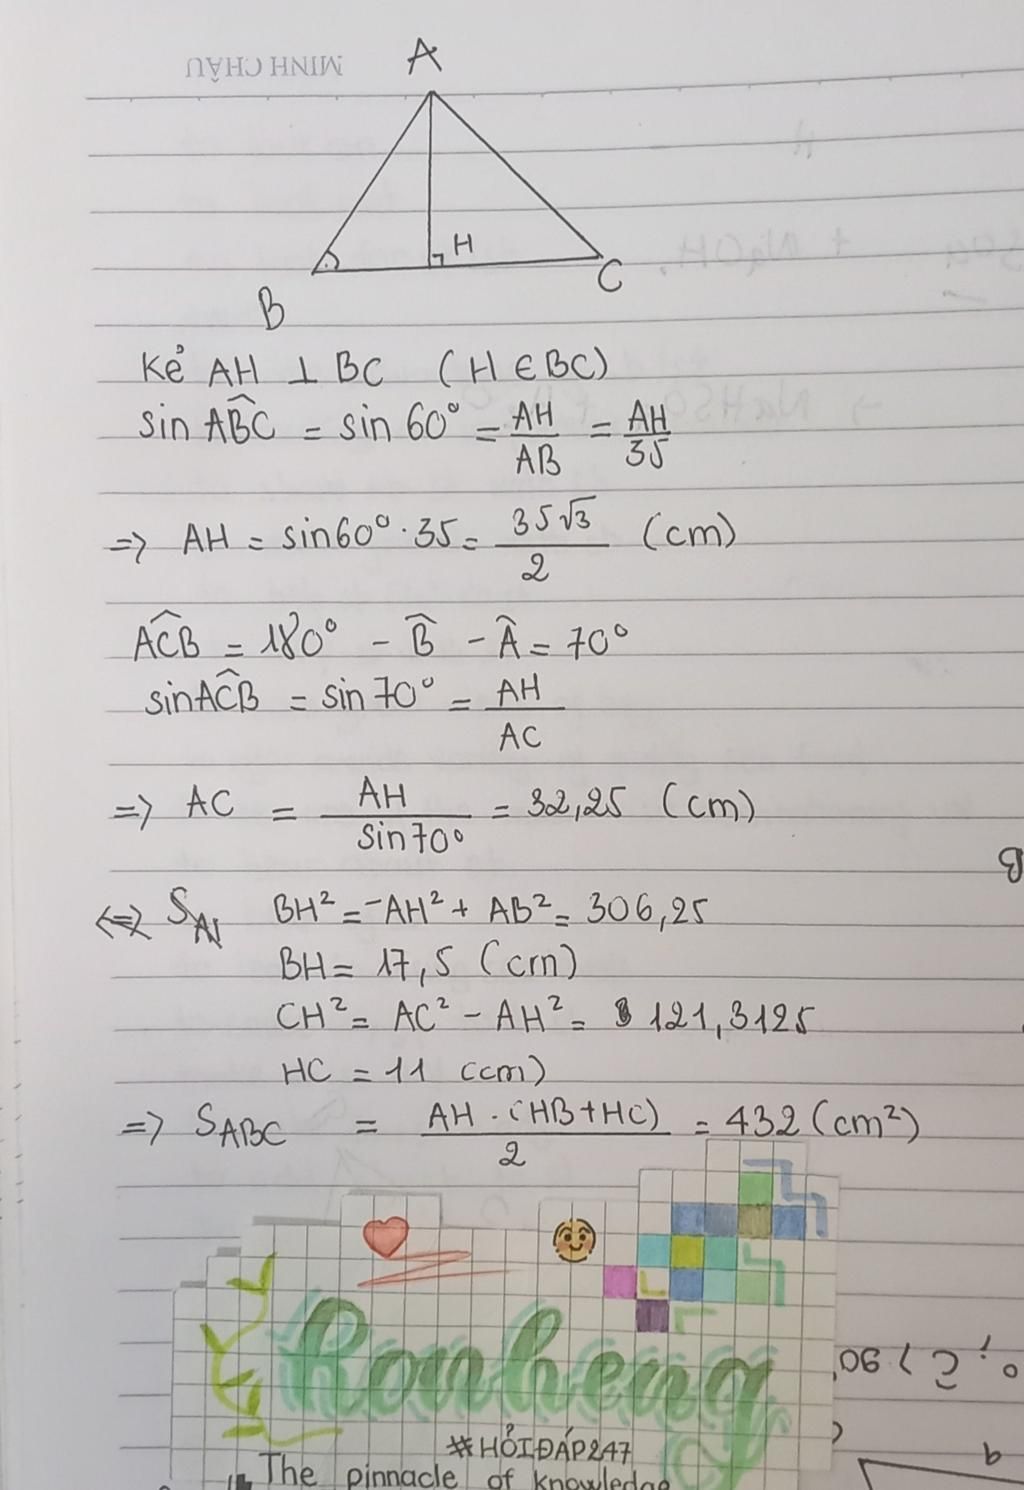 MINH CHÂU
A
H
B
C
Kẻ AH ⊥ BC (H ∈ BC)
sin ABC = sin 60° = AH/AB = AH/35
=> AH = sin60° . 35 = 35√3/2 (cm)
ACB = 180° - B - A = 70°
sin ACB = sin 70° = AH/AC
=> AC = AH/sin70° = 32,25 (cm)
BH² = -AH² + AB² = 306,25
BH = 17,5 (cm)
CH² = AC² - AH² = 121,3125
HC = 11 (cm)
=> S_ABC = AH . (HB + HC)/2 = 432 (cm²)
#HỎIĐÁP247
The pinnacle of knowledge